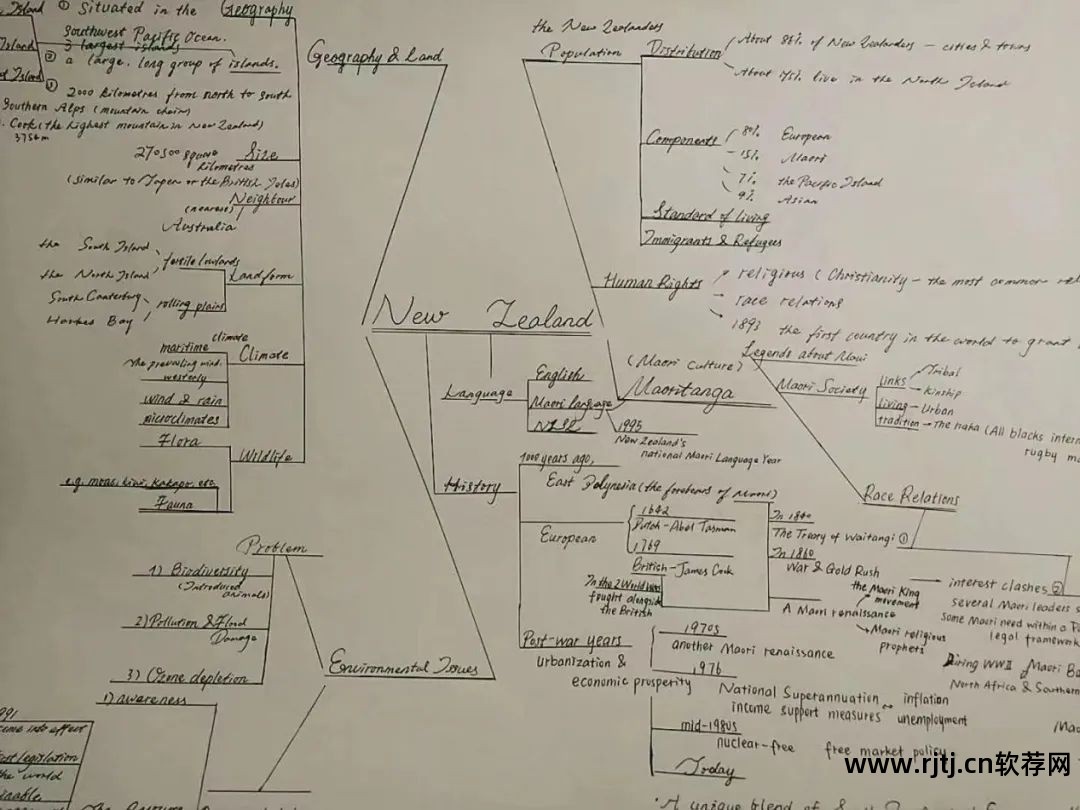 Island ① Situated in the Geography
Southwest Pacific Ocean.
Island 3 largest islands
② a large, long group of islands.
Island
2000 kilometres from north to south
Southern Alps (mountain chain)
Cook (the highest mountain in New Zealand)
3754m
270500 square kilometres Size
(similar to Japan or the British Isles)
Neighbour
(nearest)
Australia
the South Island
fertile lowlands
the North Island
Landform
South Canterbury
rolling plains
Hawkes Bay
climate
maritime
Climate
the prevailing wind.
westerly
wind & rain
microclimates
Flora
Wildlife
e.g. moas, kiwi, kakapo. etc.
Fauna
Geography & Land
the New Zealanders
Population
Distribution
About 86% of New Zealanders - cities & towns
About 75% live in the North Island
Components
80% European
15% Maori
7% the Pacific Island
9% Asian
Standard of Living
Immigrants & Refugees
Human Rights
religious (Christianity - the most common
race relations
1893 the first country in the world to grant
New Zealand
Language
English
Maori language
NZSL
1995
New Zealand's
national Maori Language Year
(Maori Culture)
Maoritanga
Legends about Maui
Maori Society
links
Tribal
Kinship
living - Urban
tradition - The haka (All blacks
rugby
Race Relations
History
1000 years ago,
East Polynesia (the forebears of Maori)
European
1642
Dutch - Abel Tasman
1769
British - James Cook
In the 2 World Wars
fought alongside
the British
In 1840
The Treaty of Waitangi ①
In 1860
War & Gold Rush
interest clashes ②
the Maori King
movement
A Maori renaissance
Maori religious
prophets
several Maori leaders
Some Maori need within a
legal framework
During WWII Maori
North Africa & Southern
Post-war years
urbanization &
economic prosperity
1970s
another Maori renaissance
1976
National Superannuation
income support measures
inflation
unemployment
mid-1980s
nuclear-free free market policy
Today
A unique blend of
Problem
1) Biodiversity
(Introduced
animals)
2) Pollution & Flood
Damage
3) Ozone depletion
Environmental Issues
1) awareness
into effect
legislation
the world
www.rjtj.cn软荐网